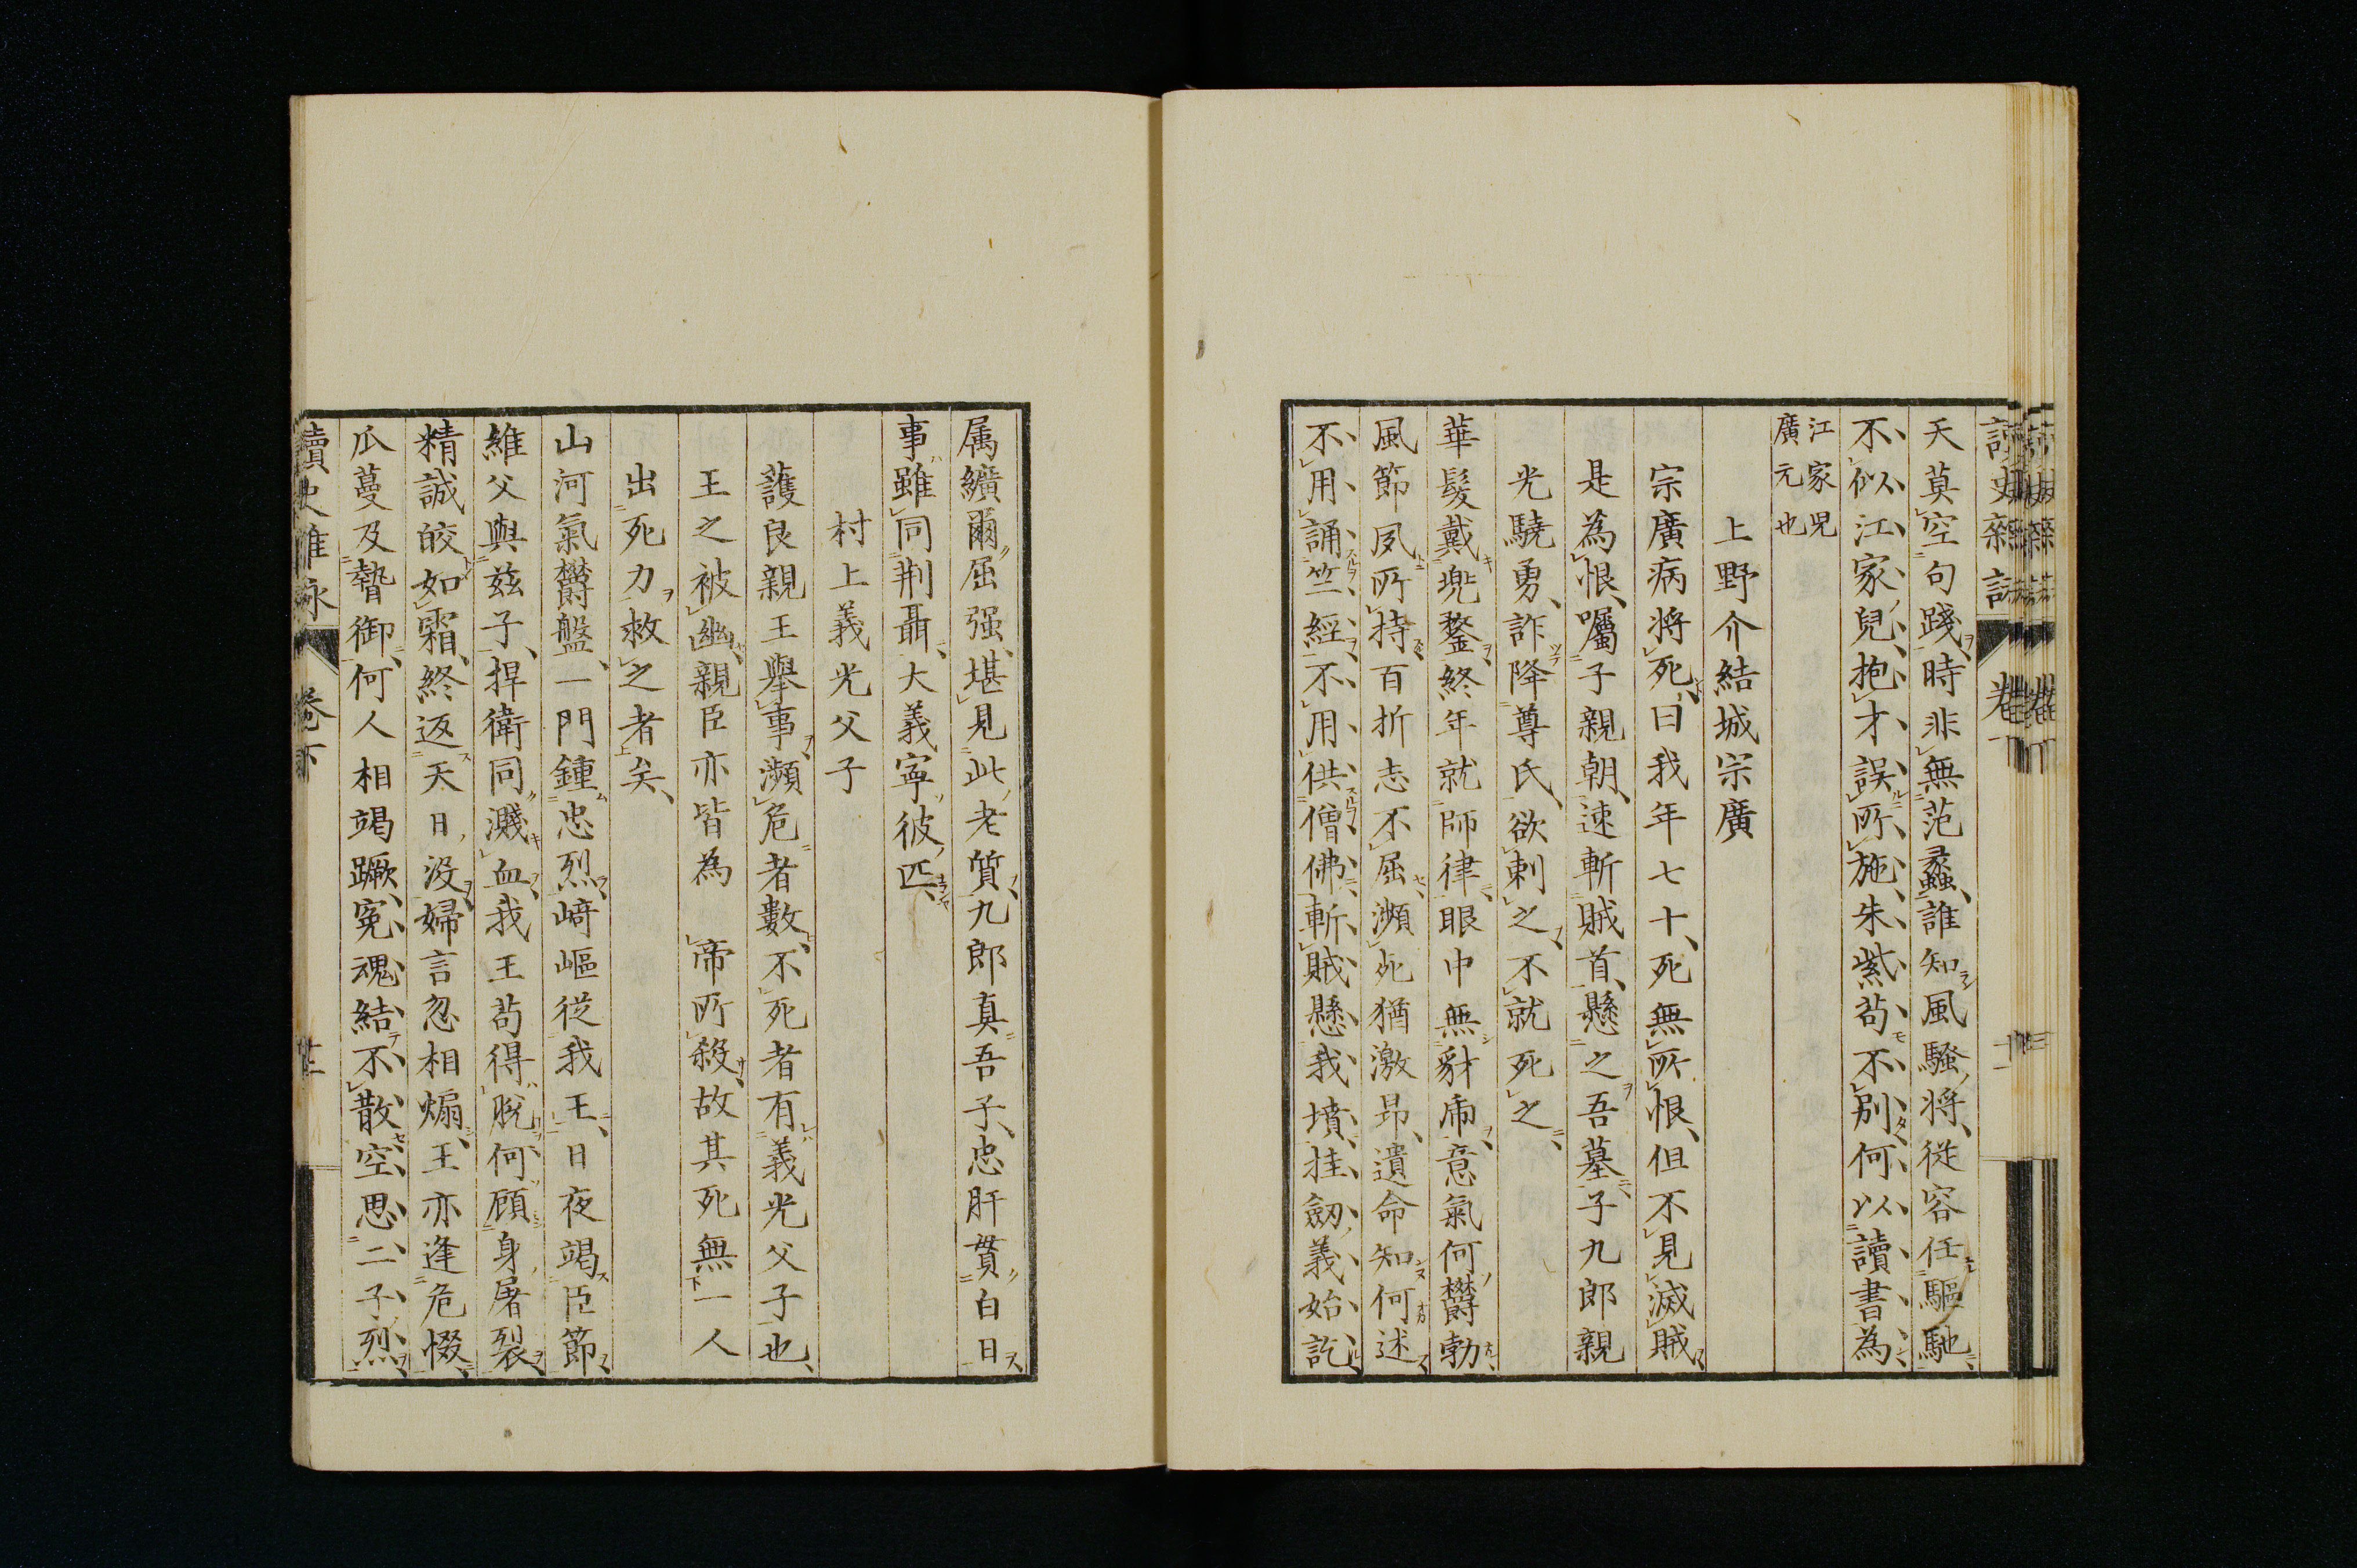 天莫空句踐時非無范蠡誰知風騷将従容任驅馳
不似江家兒抱才誤所施朱紫苟不別何以讀書為
江家児
廣元也
上野介結城宗廣
宗廣病将死曰我年七十死無所恨但不見滅賊
是為恨囑子親朝速斬賊首懸之吾墓子九郎親
光驍勇詐降尊氏欲刺之不就死之
華髮戴兜鍪終年就師律眼中無豺虎意氣何欝勃
風節夙所持百折志不屈瀕死猶激昂遺命知何述
不用誦竺經不用供僧佛斬賊懸我墳挂劔義始訖
属纊爾屈强堪見此老質九郎真吾子忠肝貫白日
事雖同荆聶大義寧彼匹
村上義光父子
護良親王舉事瀕危者數不死者有義光父子也
王之被幽親臣亦皆為　帝所殺故其死無一人
出死力救之者矣
山河氣欝盤一門鍾忠烈﨑嶇従我王日夜竭臣節
維父與兹子捍衛同濺血我王苟得脱何顧身屠裂
精誠皎如霜終返天日没婦言忽相煽王亦逢危惙
瓜蔓及𫼠御何人相竭蹶冤魂結不散空思二子烈
讀史雜詠　卷下